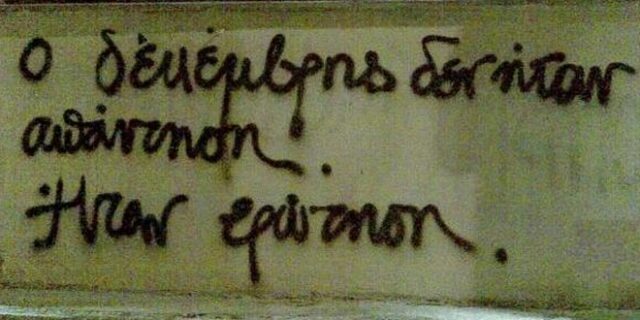 Ο Δεκέμβρης δεν ήταν
απάντηση.
Ήταν ερώτηση.